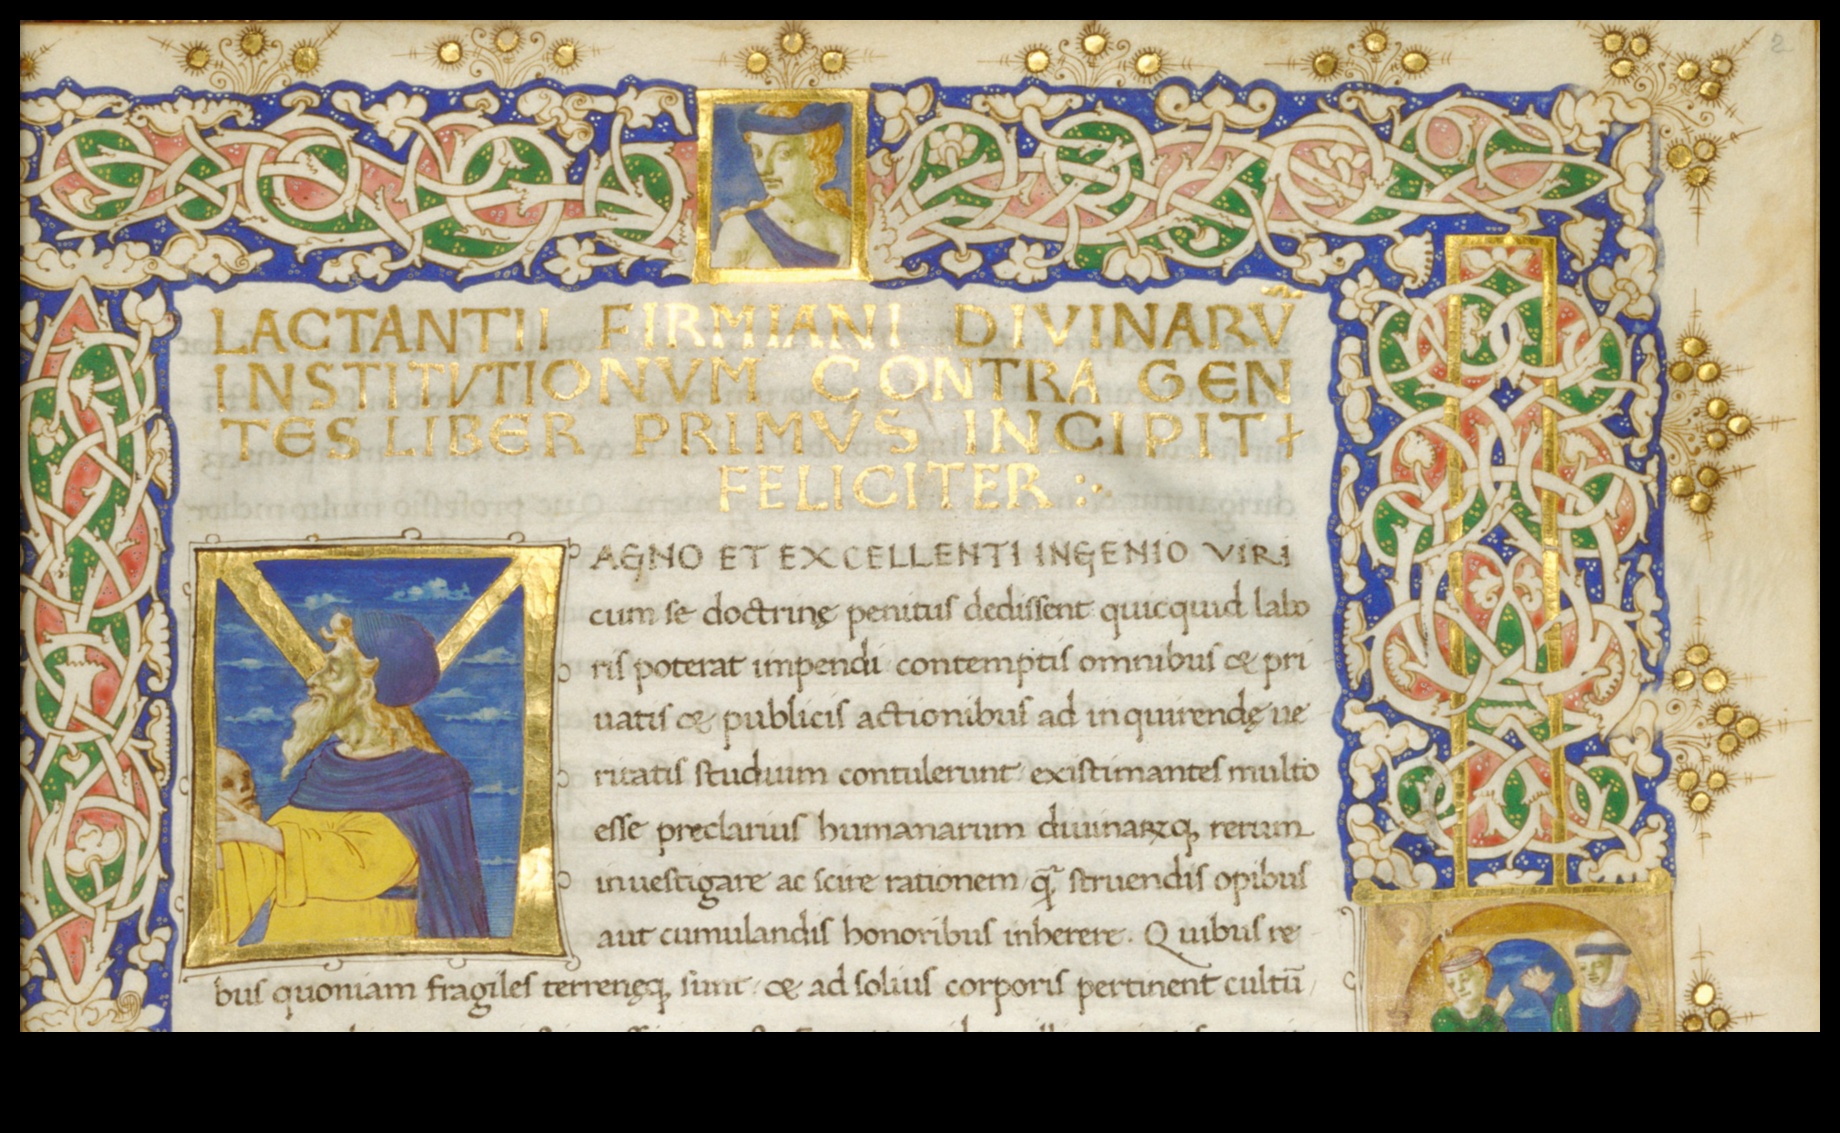 LACTANTII FIRMIANI DIVINARŪ
INSTITVTIONVM CONTRA GEN
TES LIBER PRIMVS INCIPIT
FELICITER :·
MAGNO ET EXCELLENTI INGENIO VIRI
cum se doctrinę penitus dedissent quicquid labo
ris poterat impendi contemptis omnibus & pri
uatis & publicis actionibus ad inquirendę ue
ritatis studium contulerunt existimantes multo
esse preclarius humanarum diuinaꝝq, rerum
inuestigare ac scire rationem q̄ struendis opibus
aut cumulandis honoribus inherere. Quibus re
bus quoniam fragiles terrenęq, sunt & ad solius corporis pertinent cultū